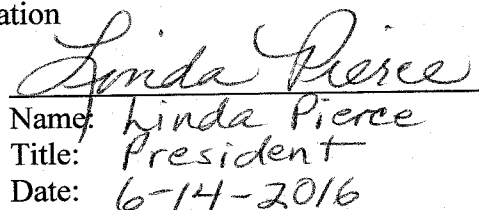 ation
Linda Pierce
Name: Linda Pierce
Title: President
Date: 6-14-2016